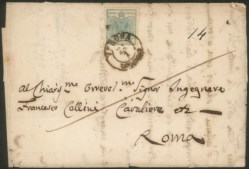 14
Al Chiar.mo Onorevol. Signor Ingegnere
Francesco Collini Cavaliere etc
Roma